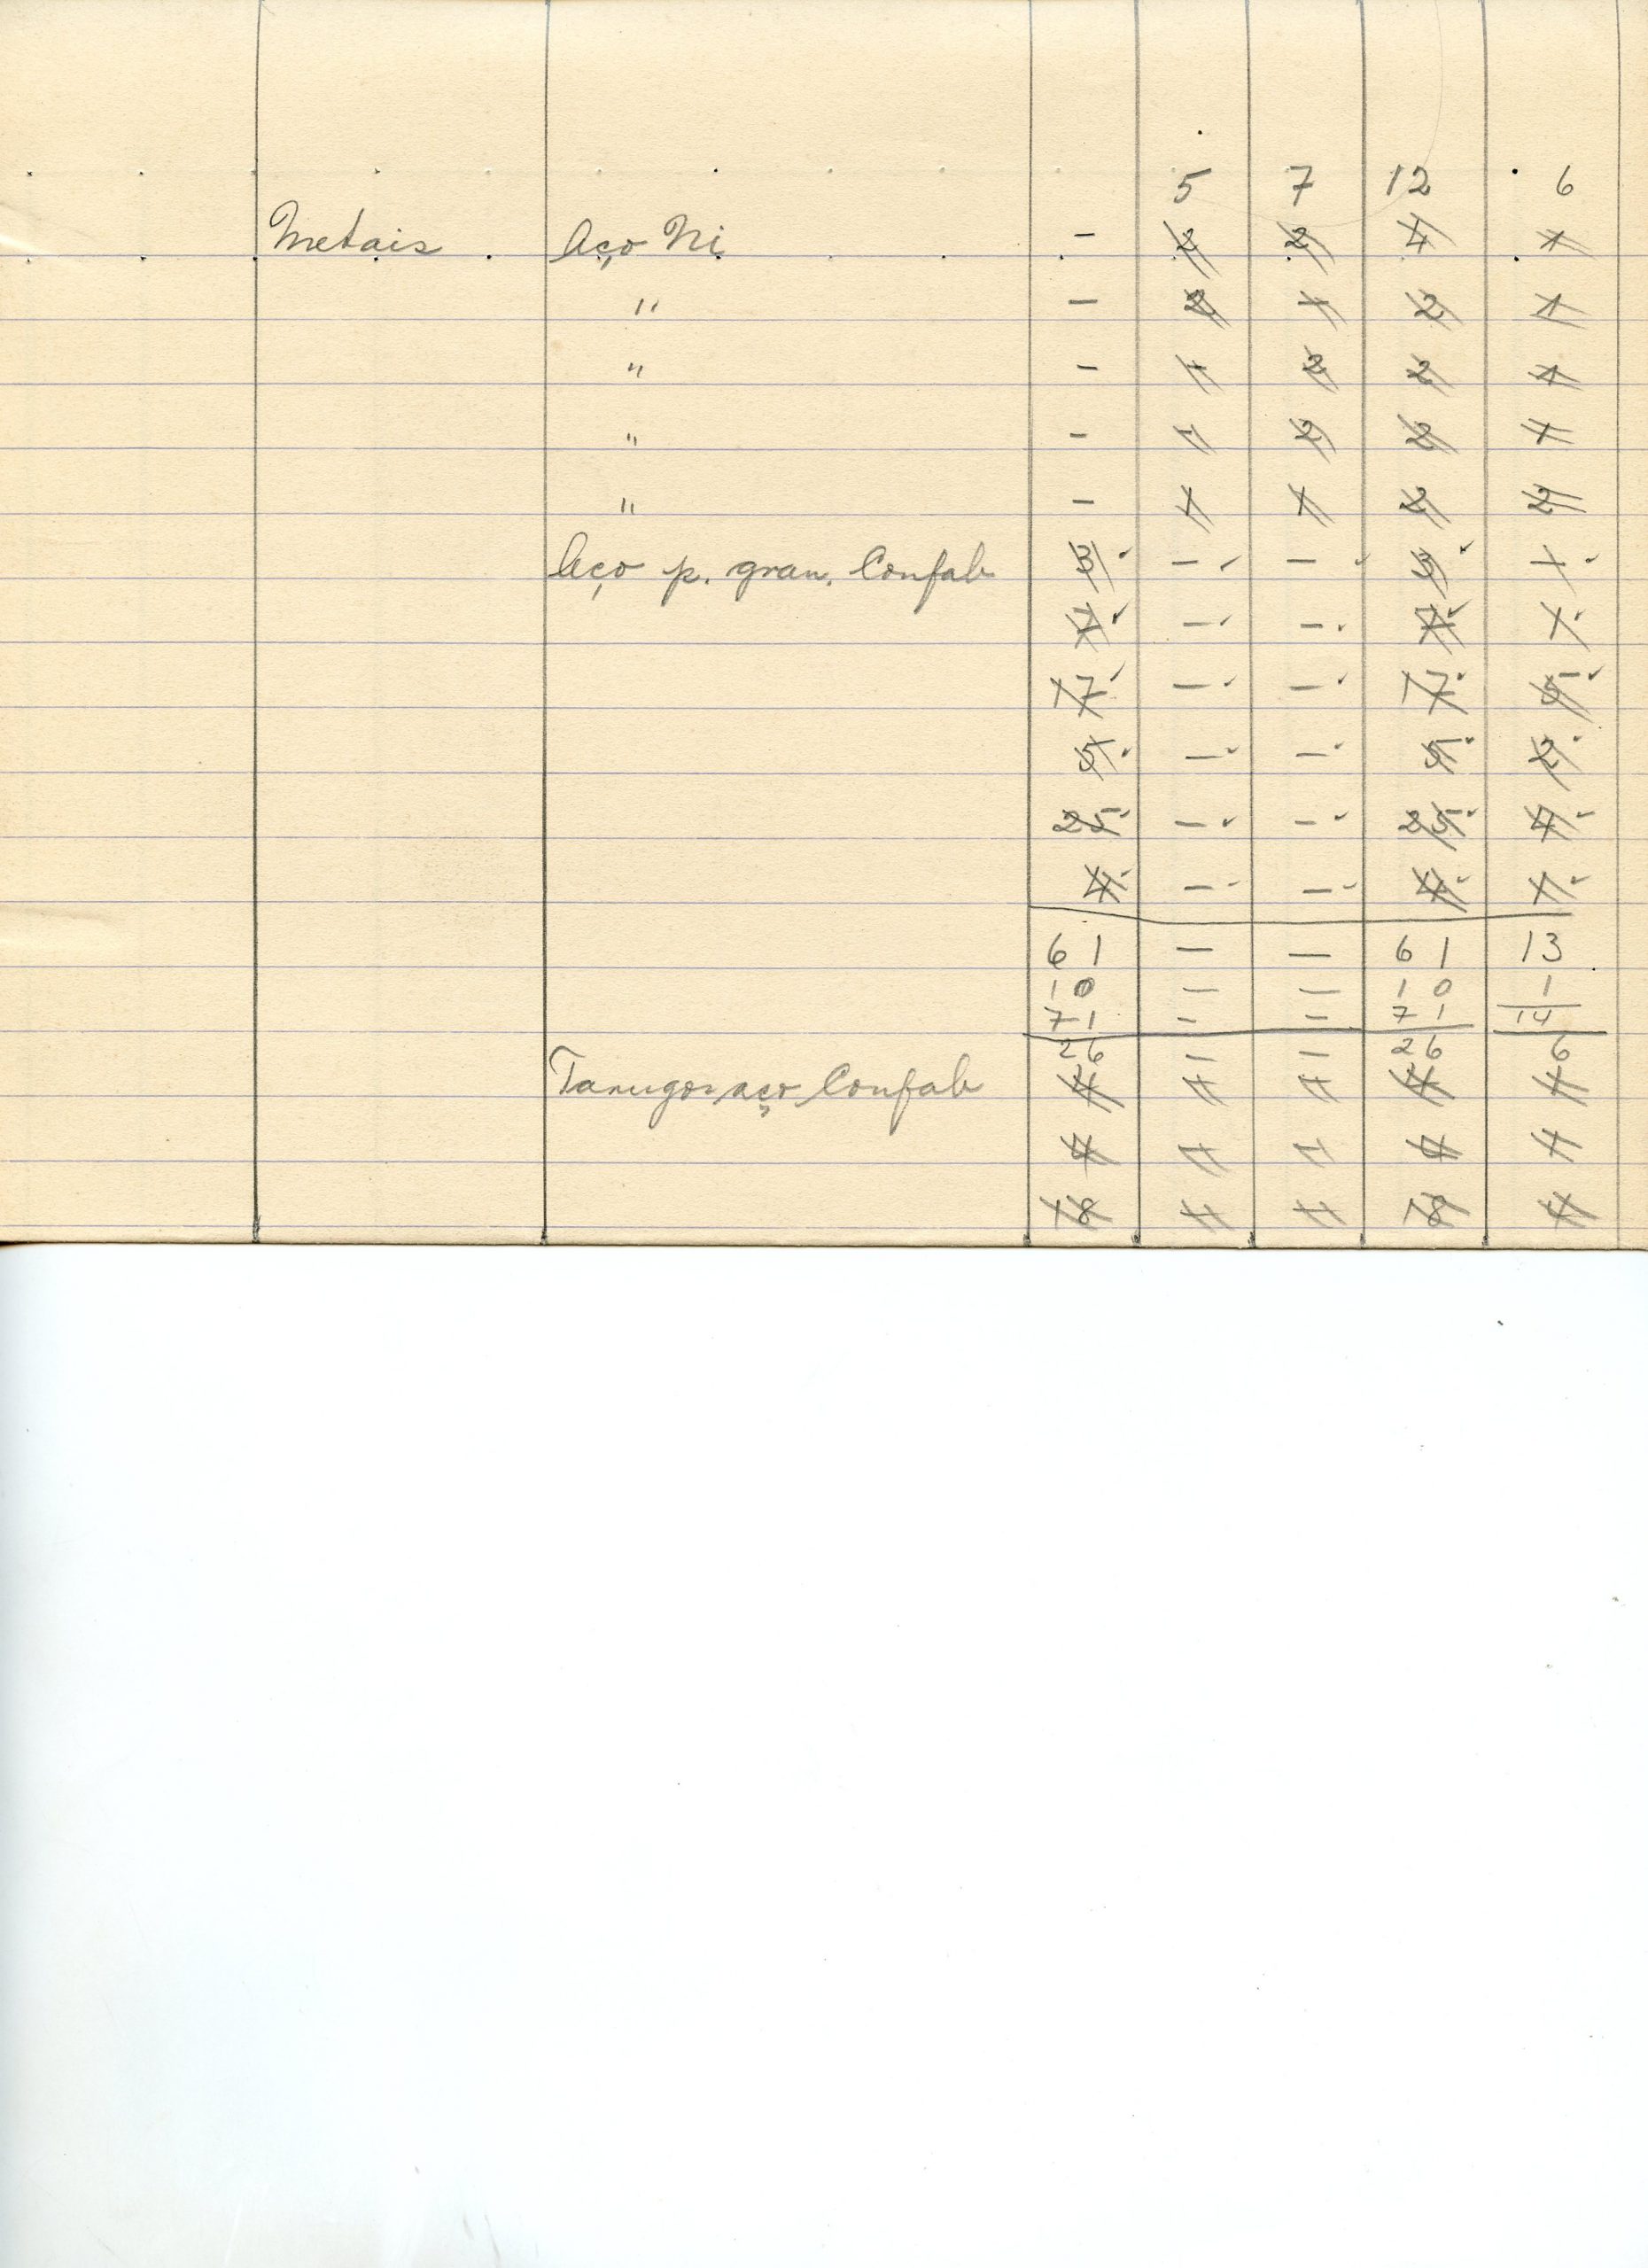 5 7 12 6
Metais Aço Ni - 2 2 4 1
" - 2 - 2 1
" - - 2 2 1
" - - 2 2 1
" - 1 1 2 2
Aço p. gran. Confab 3 - - 3 -
7 - - 7 1
17 - - 17 5
5 - - 5 2
25 - - 25 4
4 - - 4 1
61 - - 61 13
10 - - 10 1
71 - - 71 14
26 - - 26 6
Tarugos aço Confab 4 - - 4 1
4 - - 4 1
18 - - 18 4